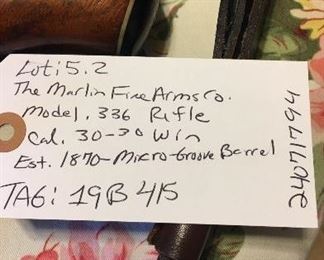 Lot: 5.2
The Marlin Fire Arms Co.
Model. 336 Rifle
Cal. 30-30 Win
Est. 1870-Micro-Groove Barrel
TAG: 19B 415
24071794